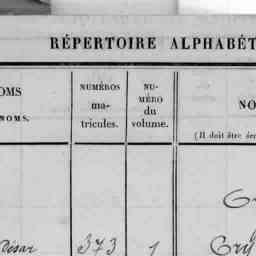 RÉPERTOIRE ALPHABÉT
OMS
NOMS.
NUMÉROS
ma-
tricules.
NU-
MÉRO
du
volume.
NO
(Il doit être
César 373 1